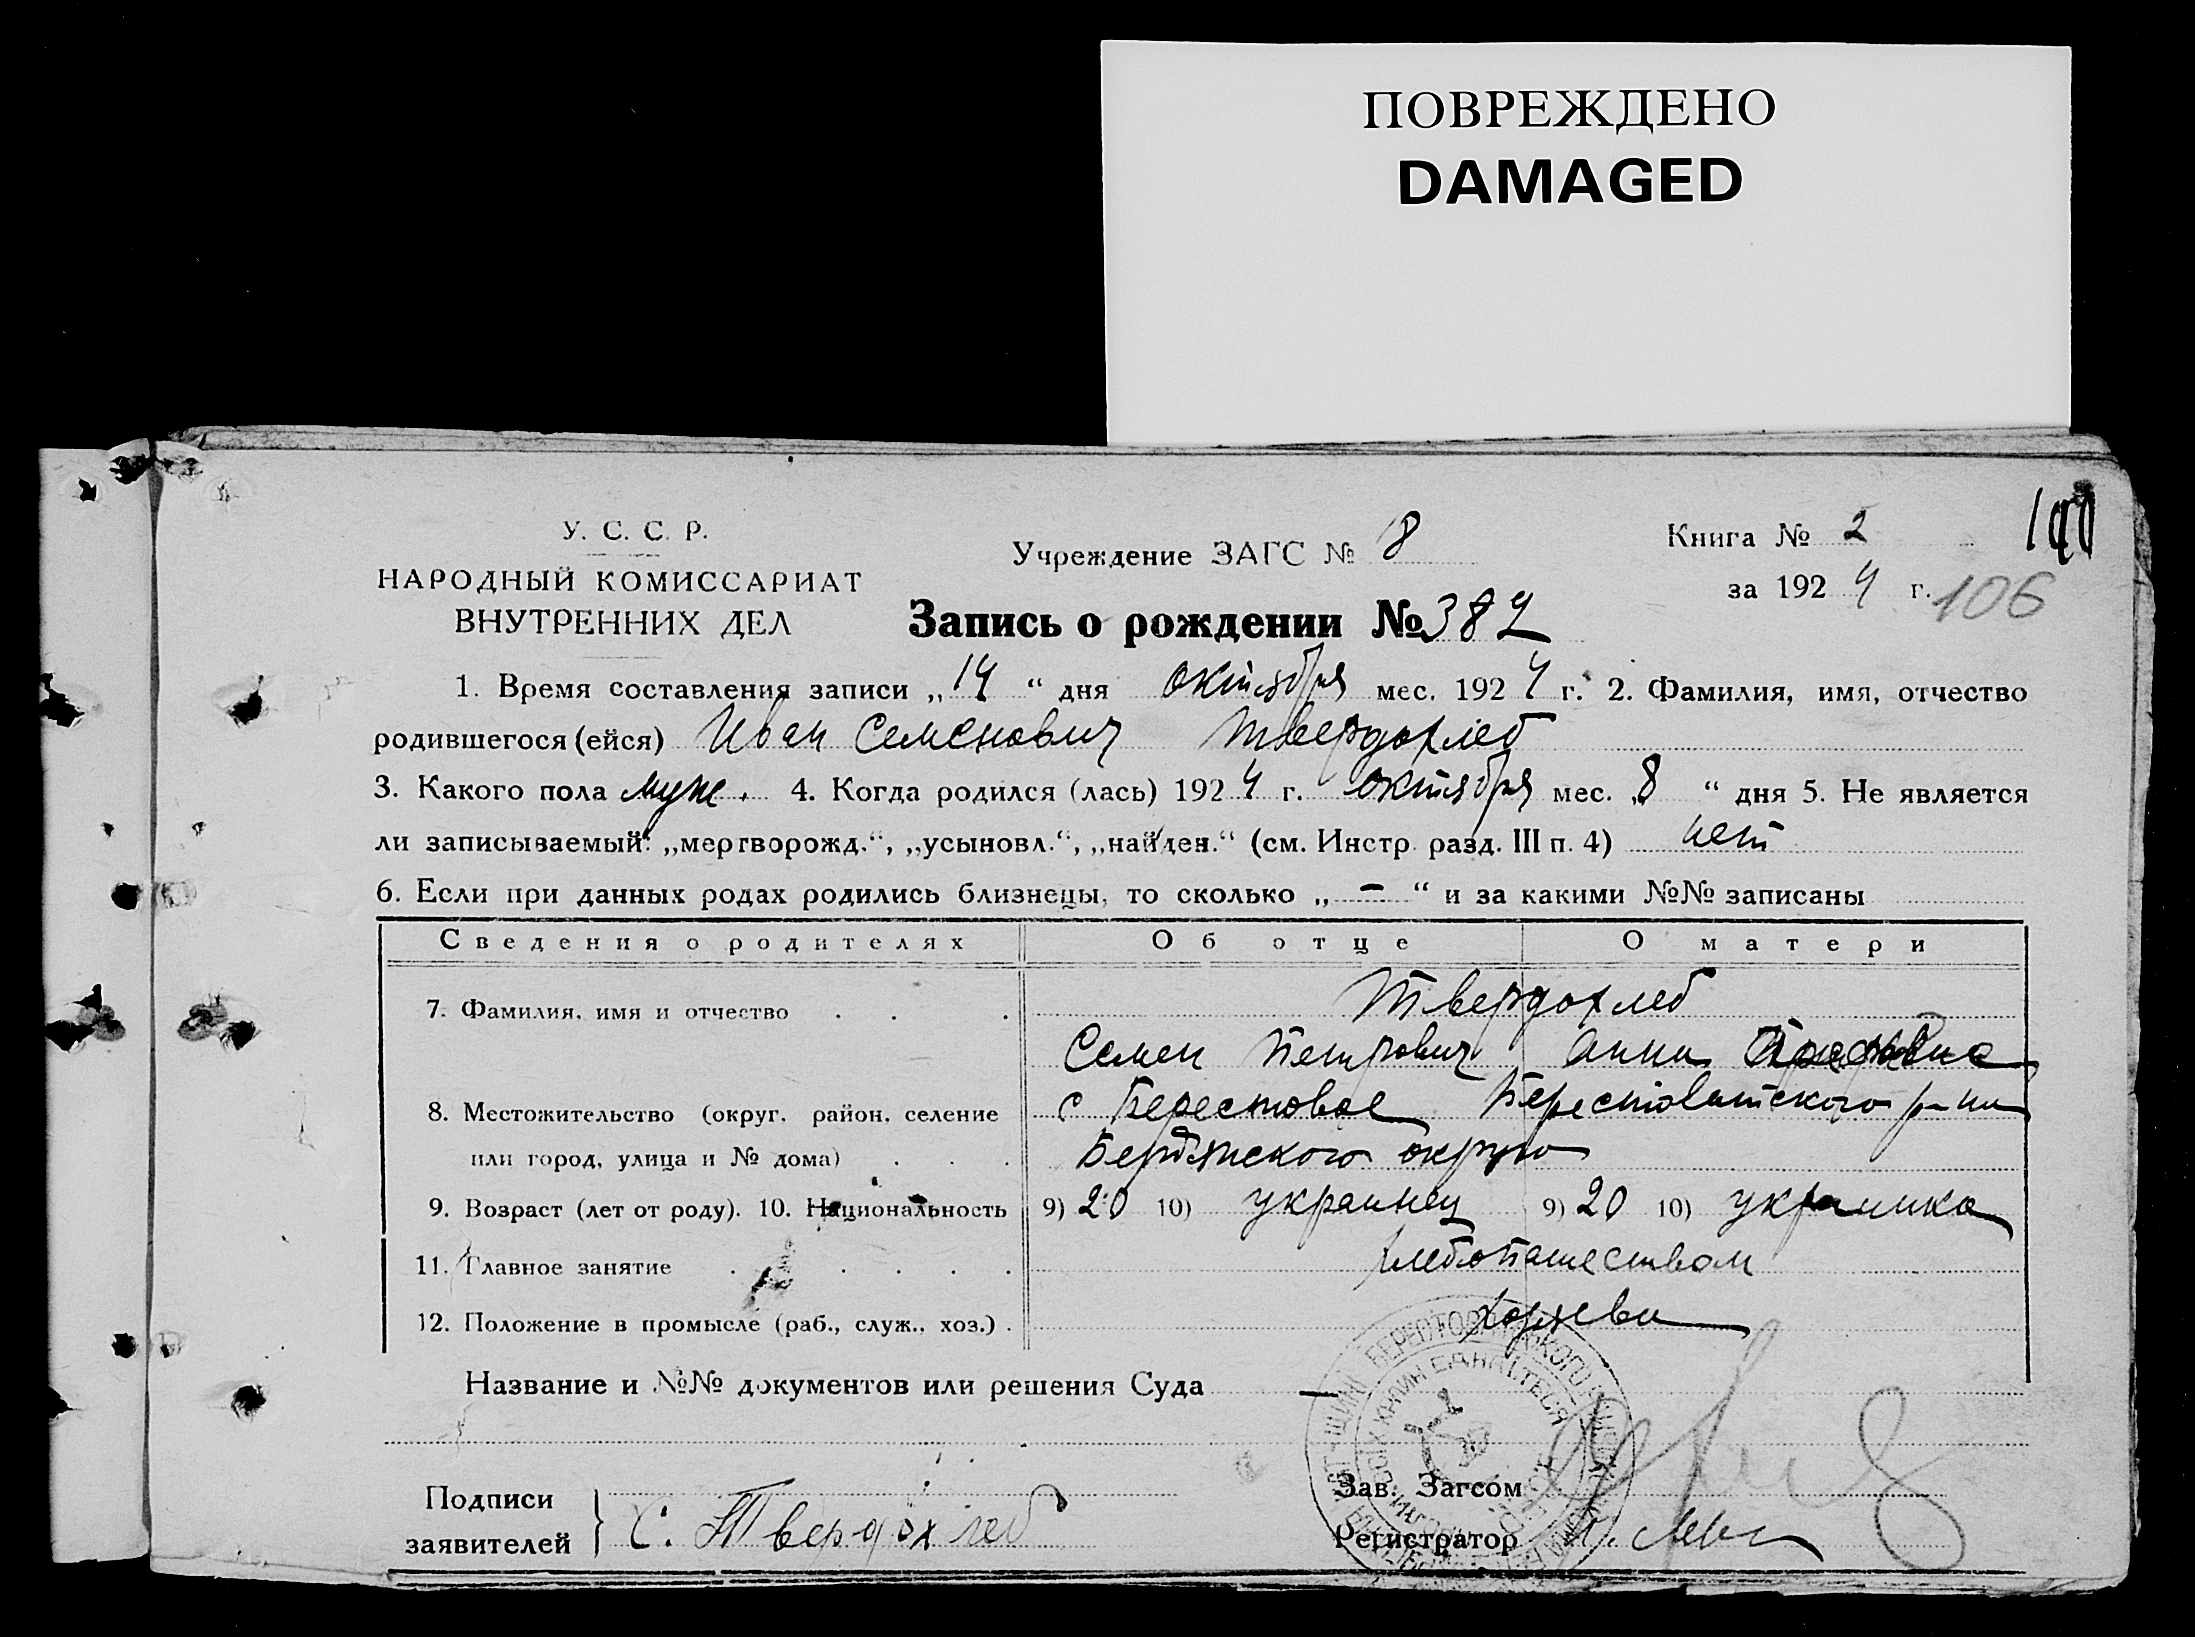 ПОВРЕЖДЕНО
DAMAGED
У. С. С. Р.
НАРОДНЫЙ КОМИССАРИАТ
ВНУТРЕННИХ ДЕЛ
Учреждение ЗАГС № 8
Книга № 2
за 1924 г.
106
Запись о рождении № 382
1. Время составления записи „14“ дня октября мес. 1924 г. 2. Фамилия, имя, отчество
родившегося (ейся) Иван Семенович Твердохлеб
3. Какого пола муж. 4. Когда родился (лась) 1924 г. октября мес. „8“ дня 5. Не является
ли записываемый: „мертворожд.“, „усыновл.“, „найден.“ (см. Инстр. разд. III п. 4) нет
6. Если при данных родах родились близнецы, то сколько „—“ и за какими №№ записаны
Сведения о родителях Об отце О матери
7. Фамилия, имя и отчество Твердохлеб
Семен Петрович Анна
8. Местожительство (округ, район, селение с Берестовое Берестоватского р-на
или город, улица и № дома) Бердянского округа
9. Возраст (лет от роду). 10. Национальность 9) 20 10) украинец 9) 20 10) украинка
11. Главное занятие хлебопашеством
12. Положение в промысле (раб., служ., хоз.) хозяева
Название и №№ документов или решения Суда —
Подписи
заявителей С. Твердохлеб
Зав. Загсом
Регистратор